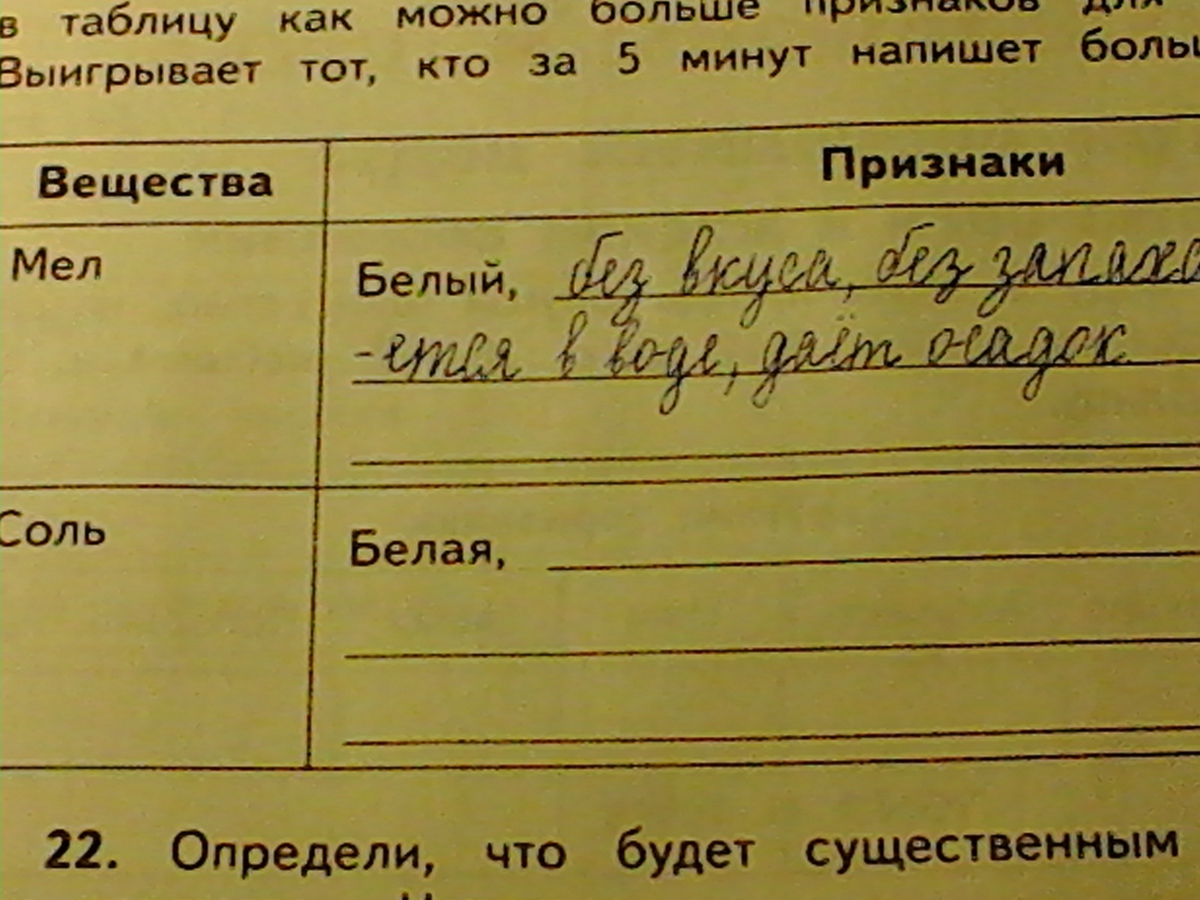 в таблицу как можно больше признаков для
Выигрывает тот, кто за 5 минут напишет
Вещества Признаки
Мел Белый, без вкуса, без запаха
-ется в воде, даёт осадок
Соль Белая,
22. Определи, что будет существенным